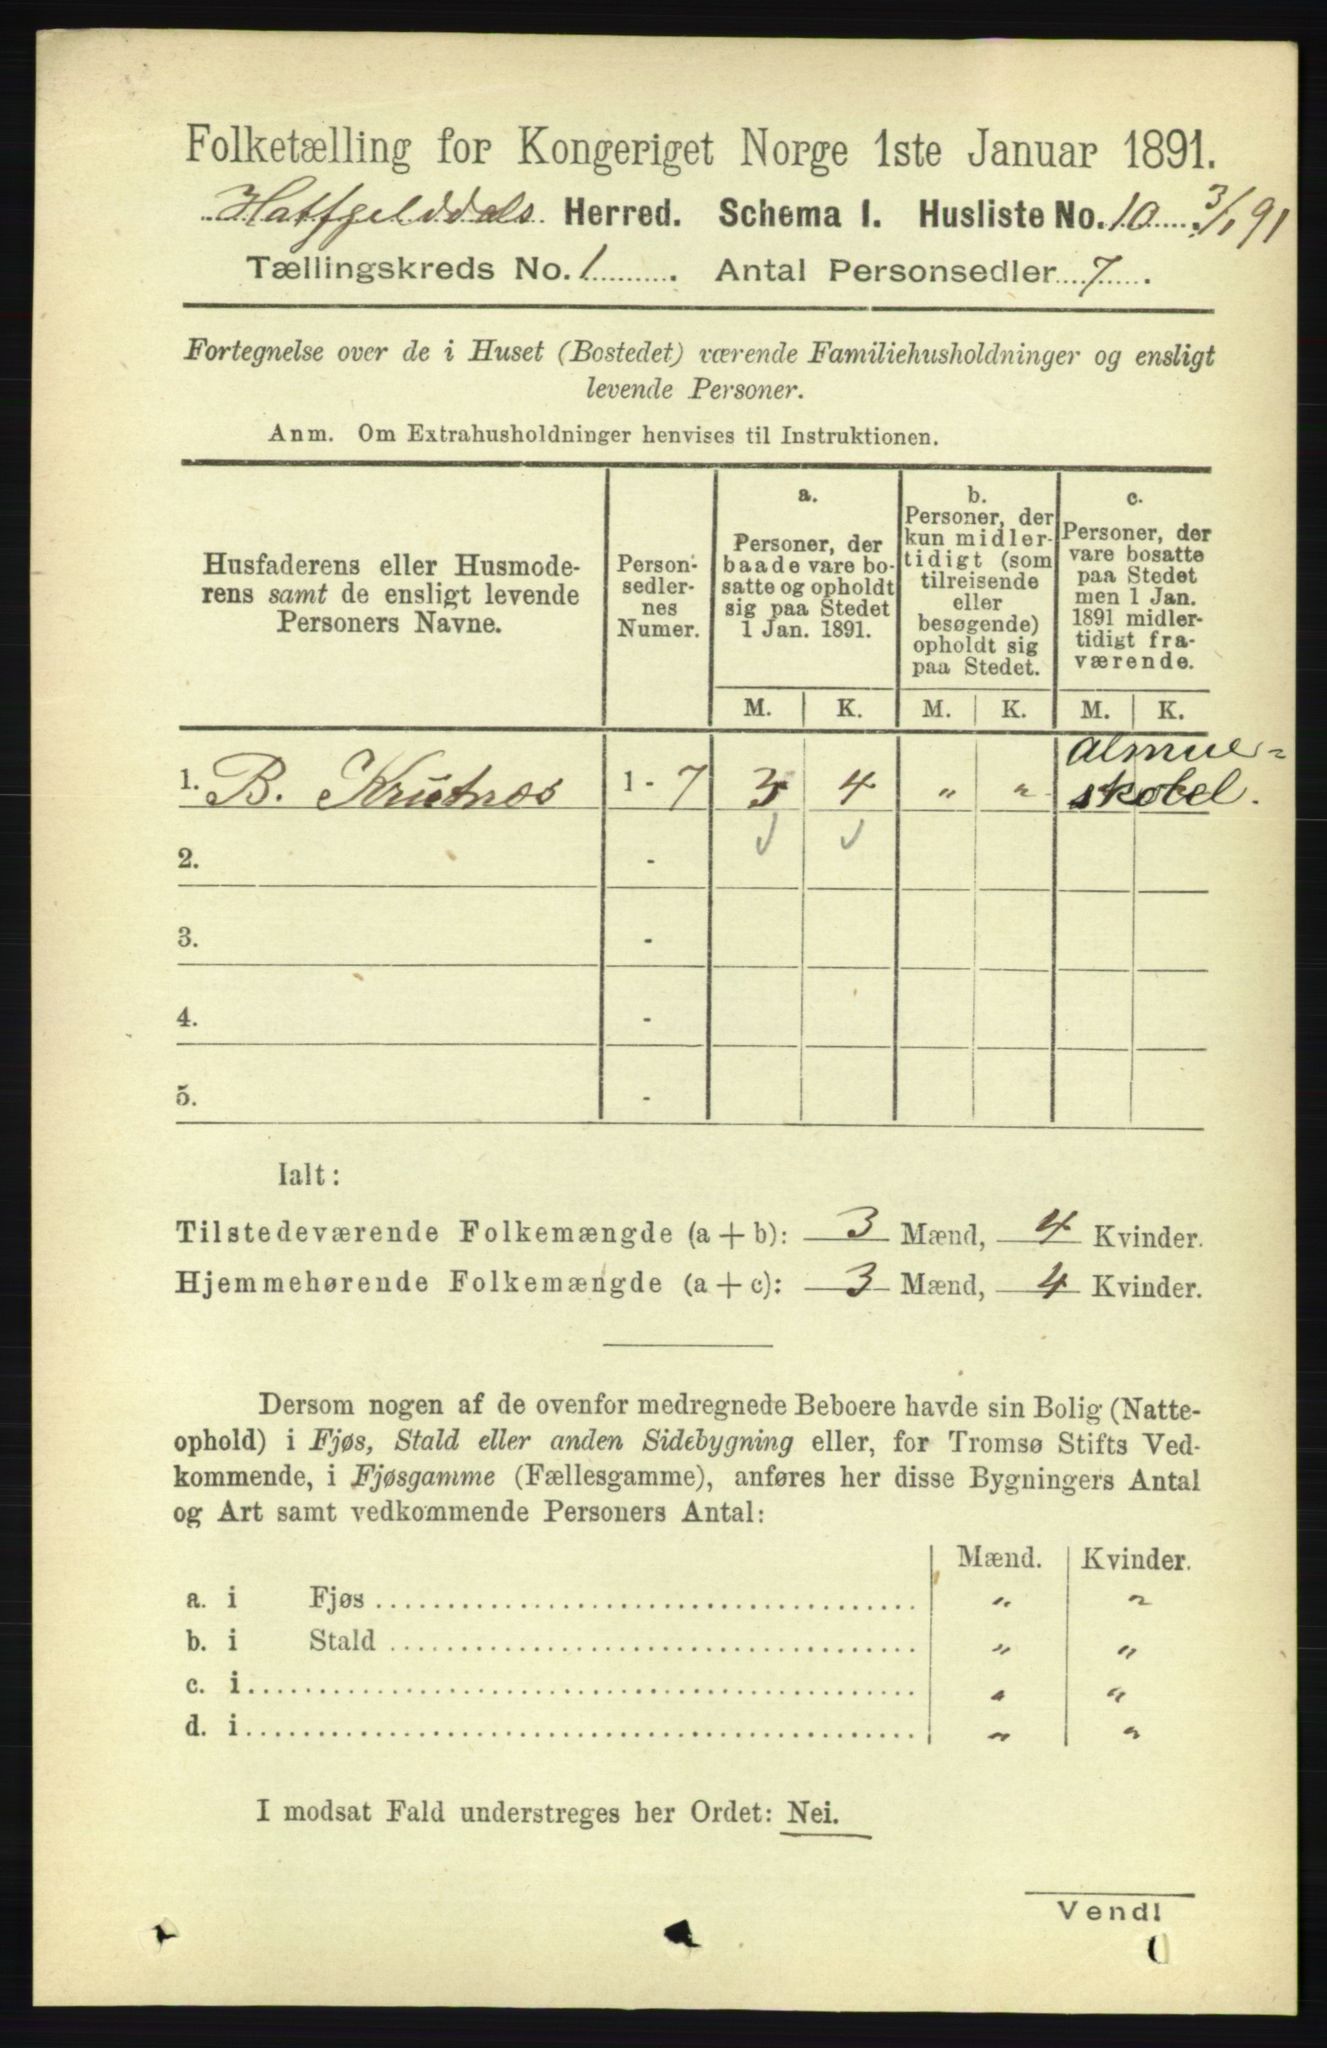 Folketælling for Kongeriget Norge 1ste Januar 1891.
Hatfjelddals Herred. Schema 1. Husliste No. 10 3/1 91
Tællingskreds No. 1. Antal Personsedler 7.
Fortegnelse over de i Huset (Bostedet) værende Familiehusholdninger og ensligt
levende Personer.
Anm. Om Extrahusholdninger henvises til Instruktionen.
Husfaderens eller Husmode-
rens samt de ensligt levende
Personers Navne.
Person-
sedler-
nes
Numer.
a.
Personer, der
baade vare bo-
satte og opholdt
sig paa Stedet
1 Jan. 1891.
b.
Personer, der
kun midler-
tidigt (som
tilreisende
eller
besøgende)
opholdt sig
paa Stedet.
c.
Personer, der
vare bosatte
paa Stedet
men 1 Jan.
1891 midler-
tidigt fra-
værende.
M. K. M. K. M. K.
1. B. Krutnes 1 - 7 3 4 " "
2. -
3. -
4. -
5. -
Ialt:
Tilstedeværende Folkemængde (a + b): 3 Mænd, 4 Kvinder.
Hjemmehørende Folkemængde (a + c): 3 Mænd, 4 Kvinder.
Dersom nogen af de ovenfor medregnede Beboere havde sin Bolig (Natte-
ophold) i Fjøs, Stald eller anden Sidebygning eller, for Tromsø Stifts Ved-
kommende, i Fjøsgamme (Fællesgamme), anføres her disse Bygningers Antal
og Art samt vedkommende Personers Antal:
Mænd. Kvinder.
a. i Fjøs " "
b. i Stald " "
c. i " "
d. i " "
I modsat Fald understreges her Ordet: Nei.
Vend!